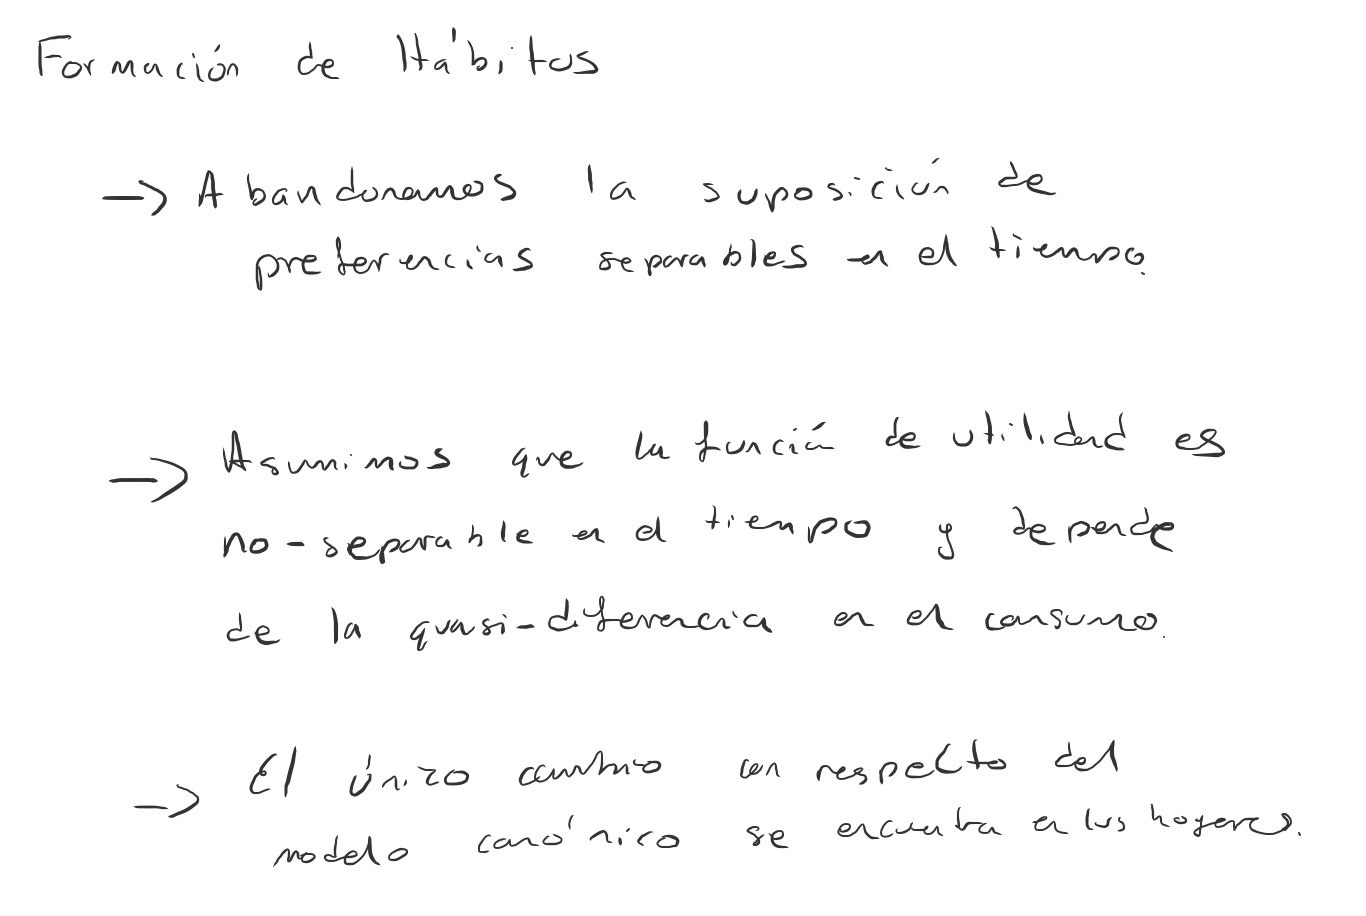 Formación de Hábitos
→ Abandonamos la suposición de
preferencias separables en el tiempo.
→ Asumimos que la función de utilidad es
no-separable en el tiempo y depende
de la quasi-diferencia en el consumo.
→ El único cambio con respecto del
modelo canónico se encuentra en los hogares.